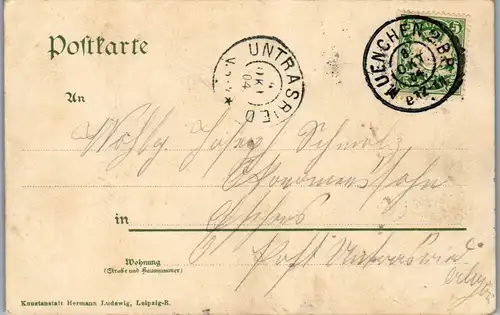 Postkarte
MUENCHEN 2. B.P.
OKT
UNTRASRIED
OKT
04
5
An
Wohlg. Josef Schmolz
Ökonomensohn
in
Post Untrasried
Wohnung
(Straße und Hausnummer)
Kunstanstalt Hermann Ludewig, Leipzig-R.